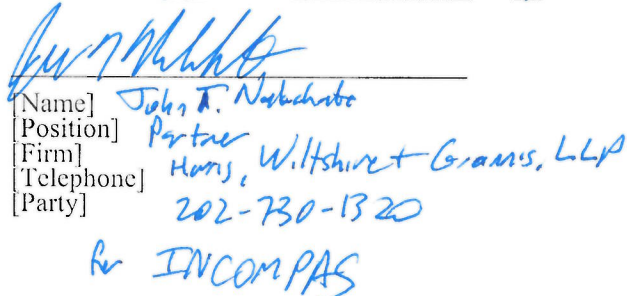 [Name] John T. Nakahata
[Position] Partner
[Firm] Harris, Wiltshire + Grannis, LLP
[Telephone]
[Party] 202-730-1320
for INCOMPAS